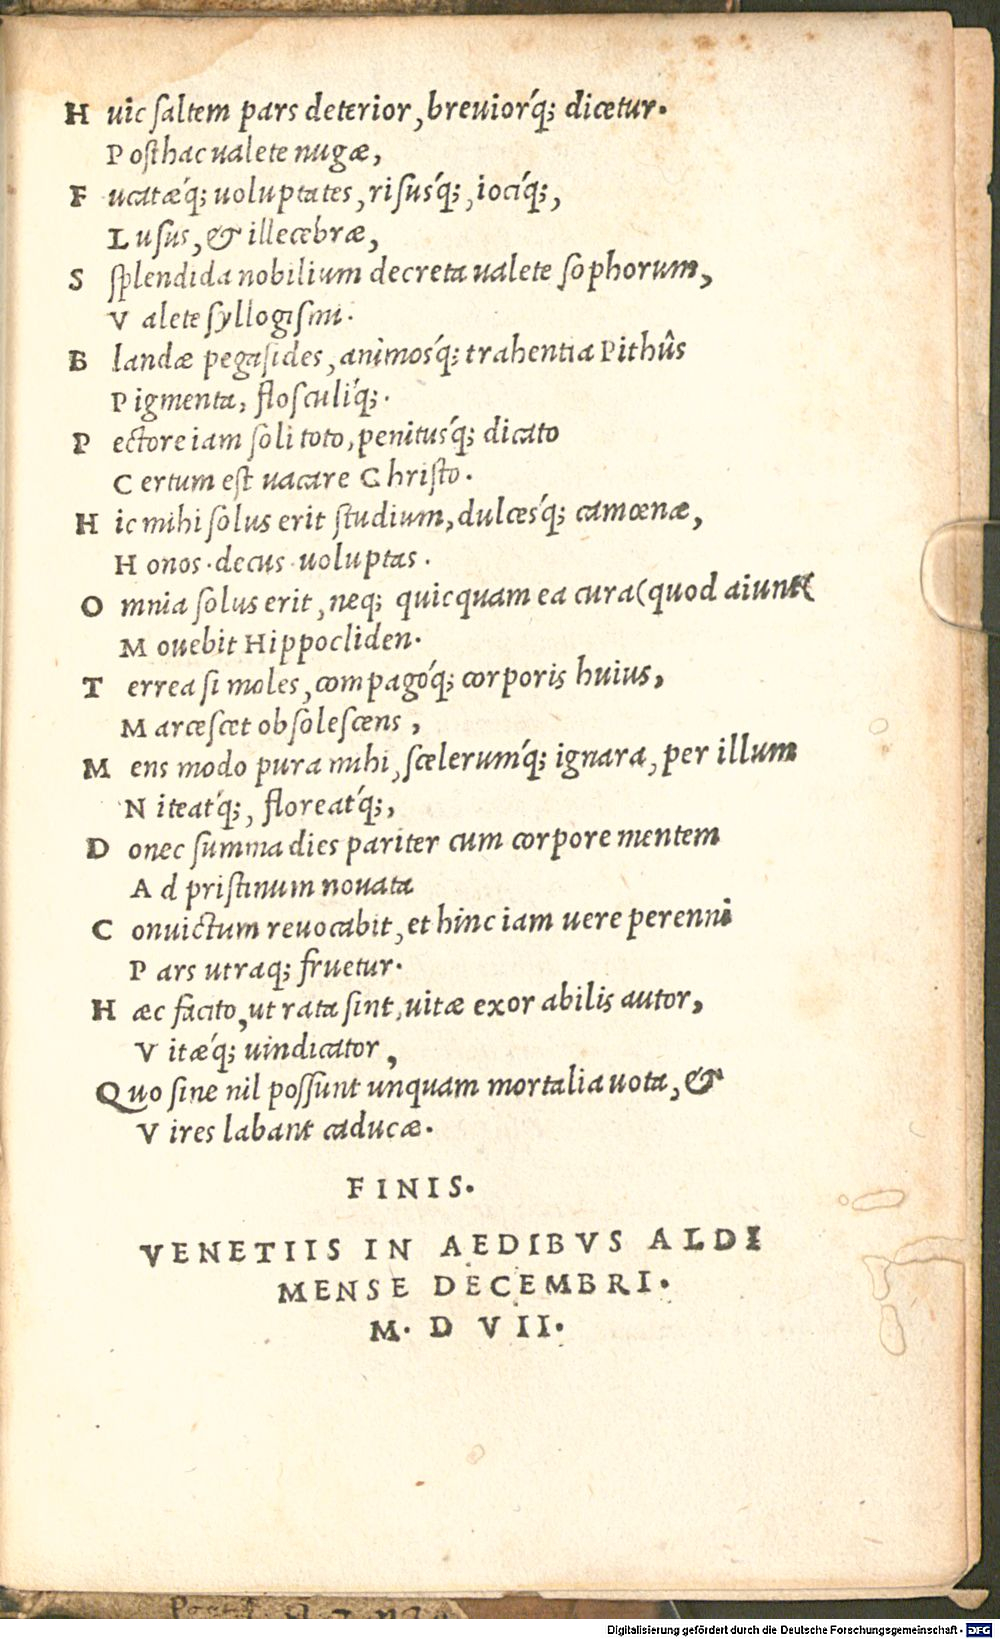 H uic saltem pars deterior, breuiorq́; dicetur.
P osthac ualete nugæ,
F ucatæq́; uoluptates, risusq́;, iociq́;,
L usus, & illecebræ,
S splendida nobilium decreta ualete sophorum,
V alete syllogismi.
B landæ pegasides, animosq́; trahentia Pithûs
P igmenta, flosculiq́;.
P ectore iam soli toto, penitusq́; dicato
C ertum est uacare Christo.
H ic mihi solus erit studium, dulcesq́; camœnæ,
H onos. decus. uoluptas.
O mnia solus erit, neq; quicquam ea cura (quod aiunt)
M ouebit Hippocliden.
T errea si moles, compagoq́; corporis huius,
M arcescet obsolescens,
M ens modo pura mihi, scelerumq́; ignara, per illum
N iteatq́;, floreatq́;,
D onec summa dies pariter cum corpore mentem
A d pristinum nouata
C onuictum reuocabit, et hinc iam uere perenni
P ars utraq; fruetur.
H æc facito, ut rata sint, uitæ exorabilis autor,
V itæq́; uindicator,
Q uo sine nil possunt unquam mortalia uota, &
V ires labant caducæ.
FINIS.
VENETIIS IN AEDIBVS ALDI
MENSE DECEMBRI.
M. D VII.
Digitalisierung gefördert durch die Deutsche Forschungsgemeinschaft - DFG